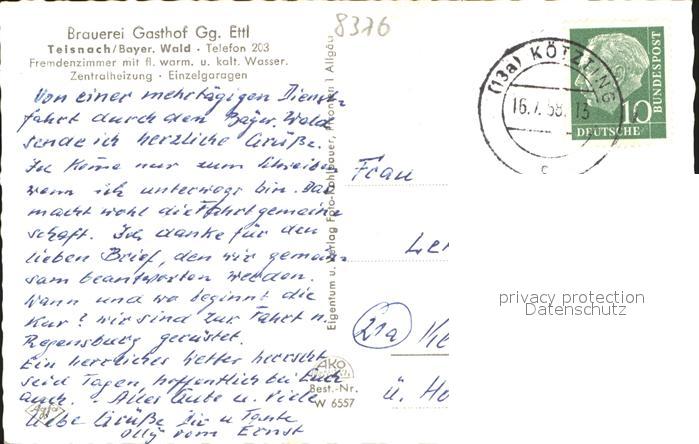 8376
Brauerei Gasthof Gg. Ettl
Teisnach/Bayer. Wald · Telefon 203
Fremdenzimmer mit fl. warm. u. kalt. Wasser.
Zentralheizung · Einzelgaragen
Von einer mehrtägigen Dienst-
fahrt durch den Bayer. Wald
sende ich herzliche Grüße.
Ich komme nur zum Schreiben
wenn ich unterwegs bin. Das
macht wohl die Fahrtgemein-
schaft. Ich danke für den
lieben Brief, den wir gemein-
sam beantworten werden.
Wann und wo beginnt die
Kur? Wir sind zur Fahrt n.
Regensburg gerüstet.
Ein herrliches Wetter herrscht
seid Tagen, hoffentlich bei Euch
auch. - Alles Gute u. viele
liebe Grüße Dir u Tante
Olly vom Ernst
Eigentum u. Verlag Foto-Kohlbauer, Pfronten i. Allgäu
AKO
Best.-Nr.
W 6557
Agfa
(13a) KÖTZTING
16.7.58.13
c
10
DEUTSCHE
BUNDESPOST
Frau
Ler
(21a)
ü. Ho
privacy protection
Datenschutz